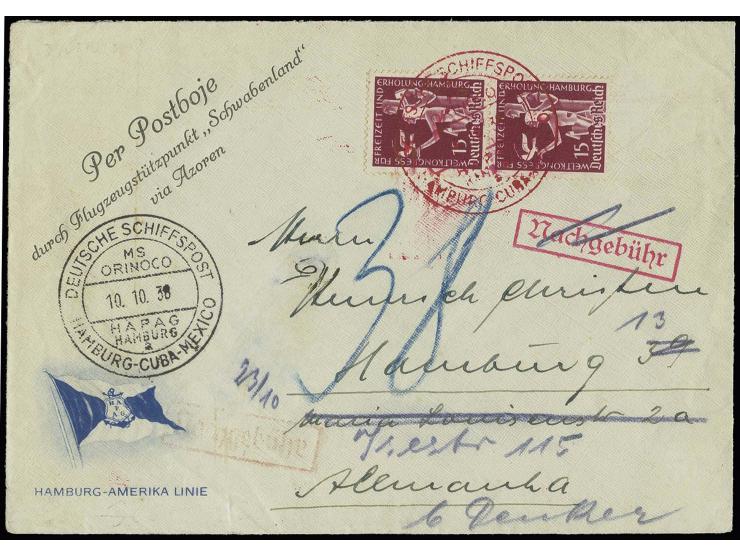 Per Postboje
durch Flugzeugstützpunkt „Schwabenland"
via Azoren
DEUTSCHE SCHIFFSPOST
MS
ORINOCO
10.10.36
HAPAG
HAMBURG
a
HAMBURG-CUBA-MEXICO
DEUTSCHE SCHIFFSPOST
HAMBURG-CUBA-
WELTKONGRESS FÜR FREIZEIT UND ERHOLUNG-HAMBURG
15
Deutsches Reich
WELTKONGRESS FÜR FREIZEIT UND ERHOLUNG-HAMBURG
15
Deutsches Reich
Nachgebühr
38
Herrn
Heinrich Christen
13
Hamburg 39
23/10
Maria Louisenstr 2a
Nachgebühr
115
Allemanha
b Denker
HAPAG
HAMBURG-AMERIKA LINIE